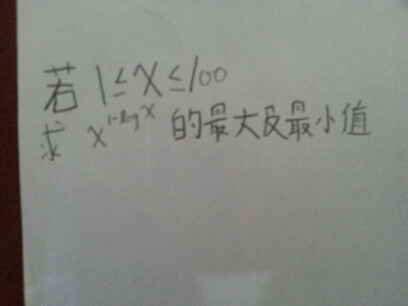 若 1≤x≤100
求 x^{1-log x} 的最大及最小值